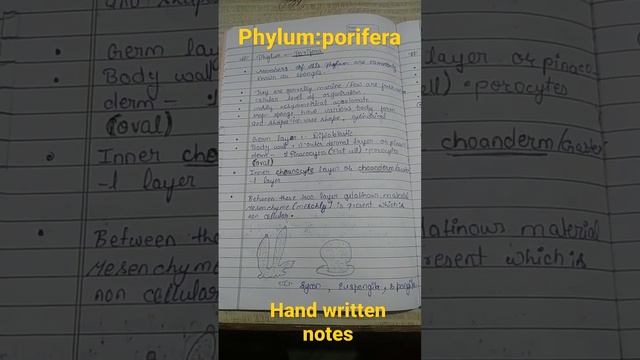 Phylum:porifera
# Phylum - Porifera
• Members of this phylum are commonly
known as sponges.
• They are generally marine / few are
• cellular level of organisation.
• mostly asymmetrical
• sponge have various body form
and shape vase shape, cylindrical
• Germ layer : Diploblastic
• Body wall : outer dermal layer or pinaco
derm - Pinacocyte (flat cell) • porocytes
(oval)
• Inner choanocyte layer or choanoderm
-l layer
• Between these two layer gelatinous material
mesenchyme (mesohyl) is present which is
non cellular.
sycon, Euspongia, spongilla
Germ lay
Body wall
derm -
(oval)
Inner
-l layer
Between the
Mesenchyme
non cellular
layer or pinaco
cell) • porocytes
choanderm/Gastr
latinous material
resent which is
Hand written
notes